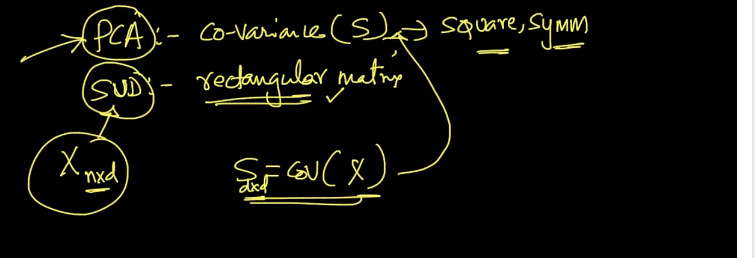 (PCA):- Co-variance (S) → square, symm
(SVD):- rectangular matrix ✓
X nxd S dxd = cov(X)